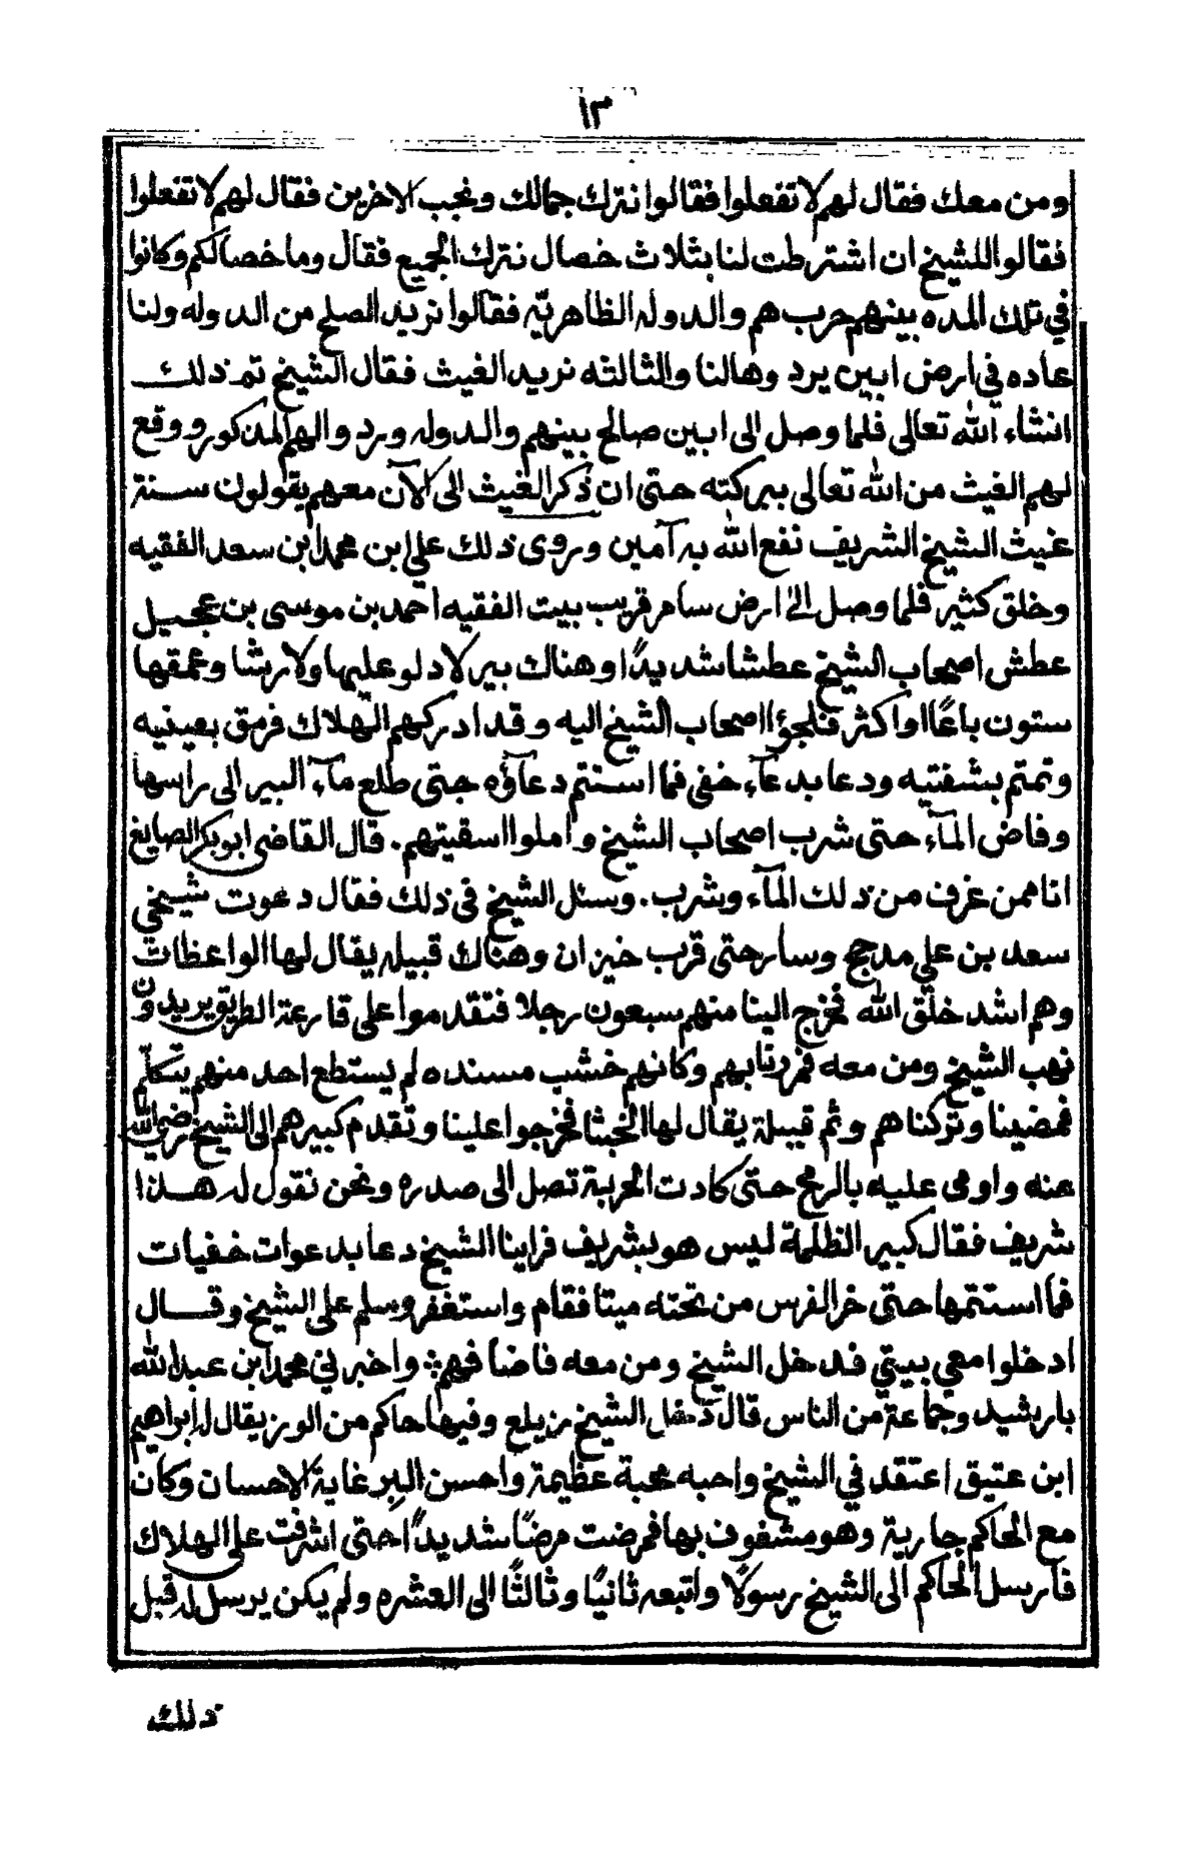 ١٣
ومن معك فقال لهم لا تفعلوا فقالوا نترك جمالك ونجب الاخرين فقال لهم لا تفعلوا
فقالوا للشيخ ان اشترطت لنا بثلاث خصال نترك الجميع فقال وما خصالكم وكانوا
في تلك المده بينهم حرب هم والدوله الظاهريّه فقالوا نريد الصلح من الدوله ولنا
عاده في ارض ابين يرد وهالنا والثالثه نريد الغيث فقال الشيخ تم ذلك
انشاء الله تعالى فلما وصل الى ابين صالح بينهم والدوله ورد والهم المذكور ووقع
لهم الغيث من الله تعالى ببركته حتى ان ذكر الغيث الى الآن معهم يقولون سنة
غيث الشيخ الشريف نفع الله به آمين وروى ذلك علي ابن محمد ابن سعد الفقيه
وخلق كثير فلما وصل الى ارض سامر قريب بيت الفقيه احمد بن موسى بن عجيل
عطش اصحاب الشيخ عطشا شديدًا وهناك بير لا دلو عليها ولا رشا وعمقها
ستون باعًا او اكثر فلجؤا اصحاب الشيخ اليه وقد ادركهم الهلاك فرمق بعينيه
وتمتم بشفتيه ودعا بدعآء خفي فما استتم دعآؤه حتى طلع مآء البير الى راسها
وفاض المآء حتى شرب اصحاب الشيخ واملوا اسقيتهم. قال القاضي ابوبكر الصايغ
انا ممن غرف من ذلك المآء وشرب. وسئل الشيخ في ذلك فقال دعوت شيخي
سعد بن علي مدحج وسار حتى قرب خيزان وهناك قبيله يقال لها الواعظات
وهم اشد خلق الله فخرج الينا منهم سبعون رجلا فتقدموا على قارعة الطريق يريدون
نهب الشيخ ومن معه فمررنا بهم وكانهم خشب مسنده لم يستطع احد منهم يتكلّم
فمضينا وتركناهم وثم قبيلة يقال لها الخبثا فخرجوا علينا وتقدم كبيرهم الى الشيخ رضي الله
عنه واومى عليه بالرمح حتى كادت الحربة تصل الى صدره ونحن نقول له هذا
شريف فقال كبير الظلمة ليس هو بشريف فراينا الشيخ دعا بدعوات خفيات
فما استتمها حتى خر الفرس من تحته ميتا فقام واستغفر وسلم على الشيخ وقال
ادخلوا معي بيتي فدخل الشيخ ومن معه فاضافهم واخبرني محمد ابن عبد الله
بارشيد وجماعة من الناس قال دخل الشيخ زيلع وفيها حاكم من الوزر يقال له ابراهيم
ابن عتيق اعتقد في الشيخ واحبه محبة عظيمة واحسن البر غاية الاحسان وكان
مع الحاكم جارية وهو مشغوف بها فمرضت مرضًا شديدًا حتى اشرفت على الهلاك
فارسل الحاكم الى الشيخ رسولًا واتبعه ثانيًا وثالثًا الى العشره ولم يكن يرسل له قبل
ذلك